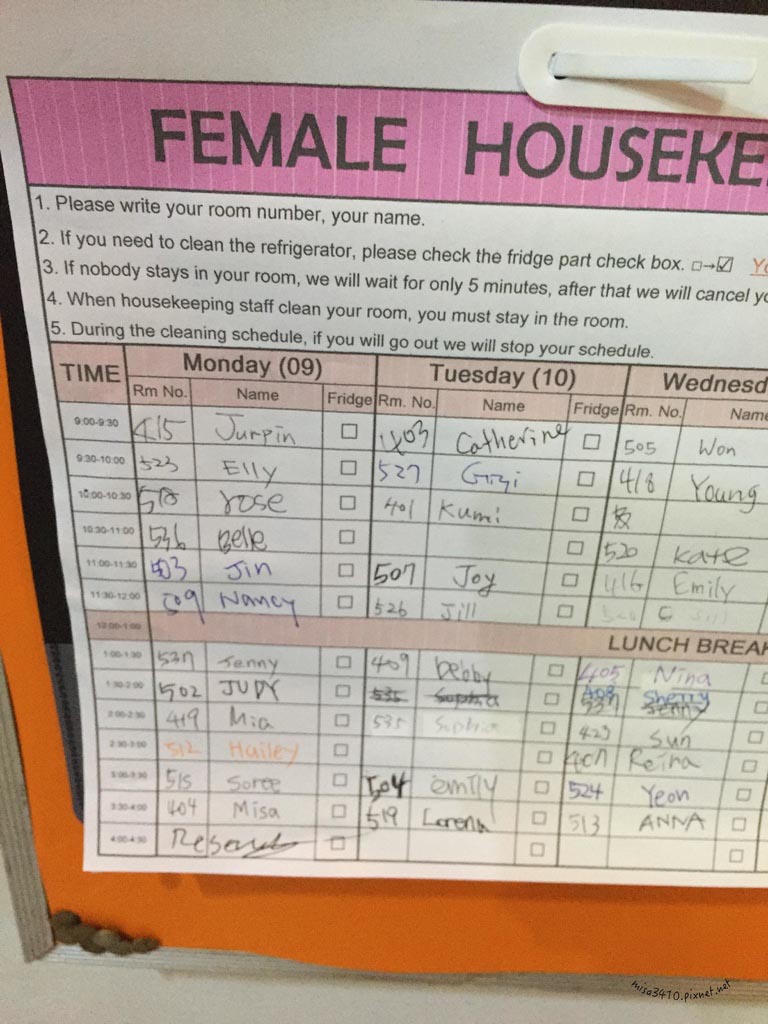 FEMALE HOUSEKE
1. Please write your room number, your name.
2. If you need to clean the refrigerator, please check the fridge part check box. □→☑ Yo
3. If nobody stays in your room, we will wait for only 5 minutes, after that we will cancel yo
4. When housekeeping staff clean your room, you must stay in the room.
5. During the cleaning schedule, if you will go out we will stop your schedule.
TIME Monday (09) Tuesday (10) Wednesd
Rm No. Name Fridge Rm. No. Name Fridge Rm. No. Name
9:00-9:30 415 Jurpin □ 403 Catherine □ 505 Won
9:30-10:00 523 Elly □ 527 Gigi □ 418 Young
10:00-10:30 518 rose □ 401 Kumi □
10:30-11:00 536 Belle □ □ 520 Kate
11:00-11:30 503 Jin □ 507 Joy □ 416 Emily
11:30-12:00 509 Nancy □ 526 Jill □
12:00-1:00 LUNCH BREAK
1:00-1:30 537 Jenny □ 409 Debby □ 405 Nina
1:30-2:00 502 JUDY □ 535 Sophia □ 408 Sherry 537 Jenny
2:00-2:30 419 Mia □ 535 Sophia 423 Sun
2:30-3:00 512 Hailey □ □ 407 Reina
3:00-3:30 515 Soree □ 504 emily □ 524 Yeon □
3:30-4:00 404 Misa □ 519 Lorena □ 513 ANNA □
4:00-4:30 □ □ □
misa3410.pixnet.net